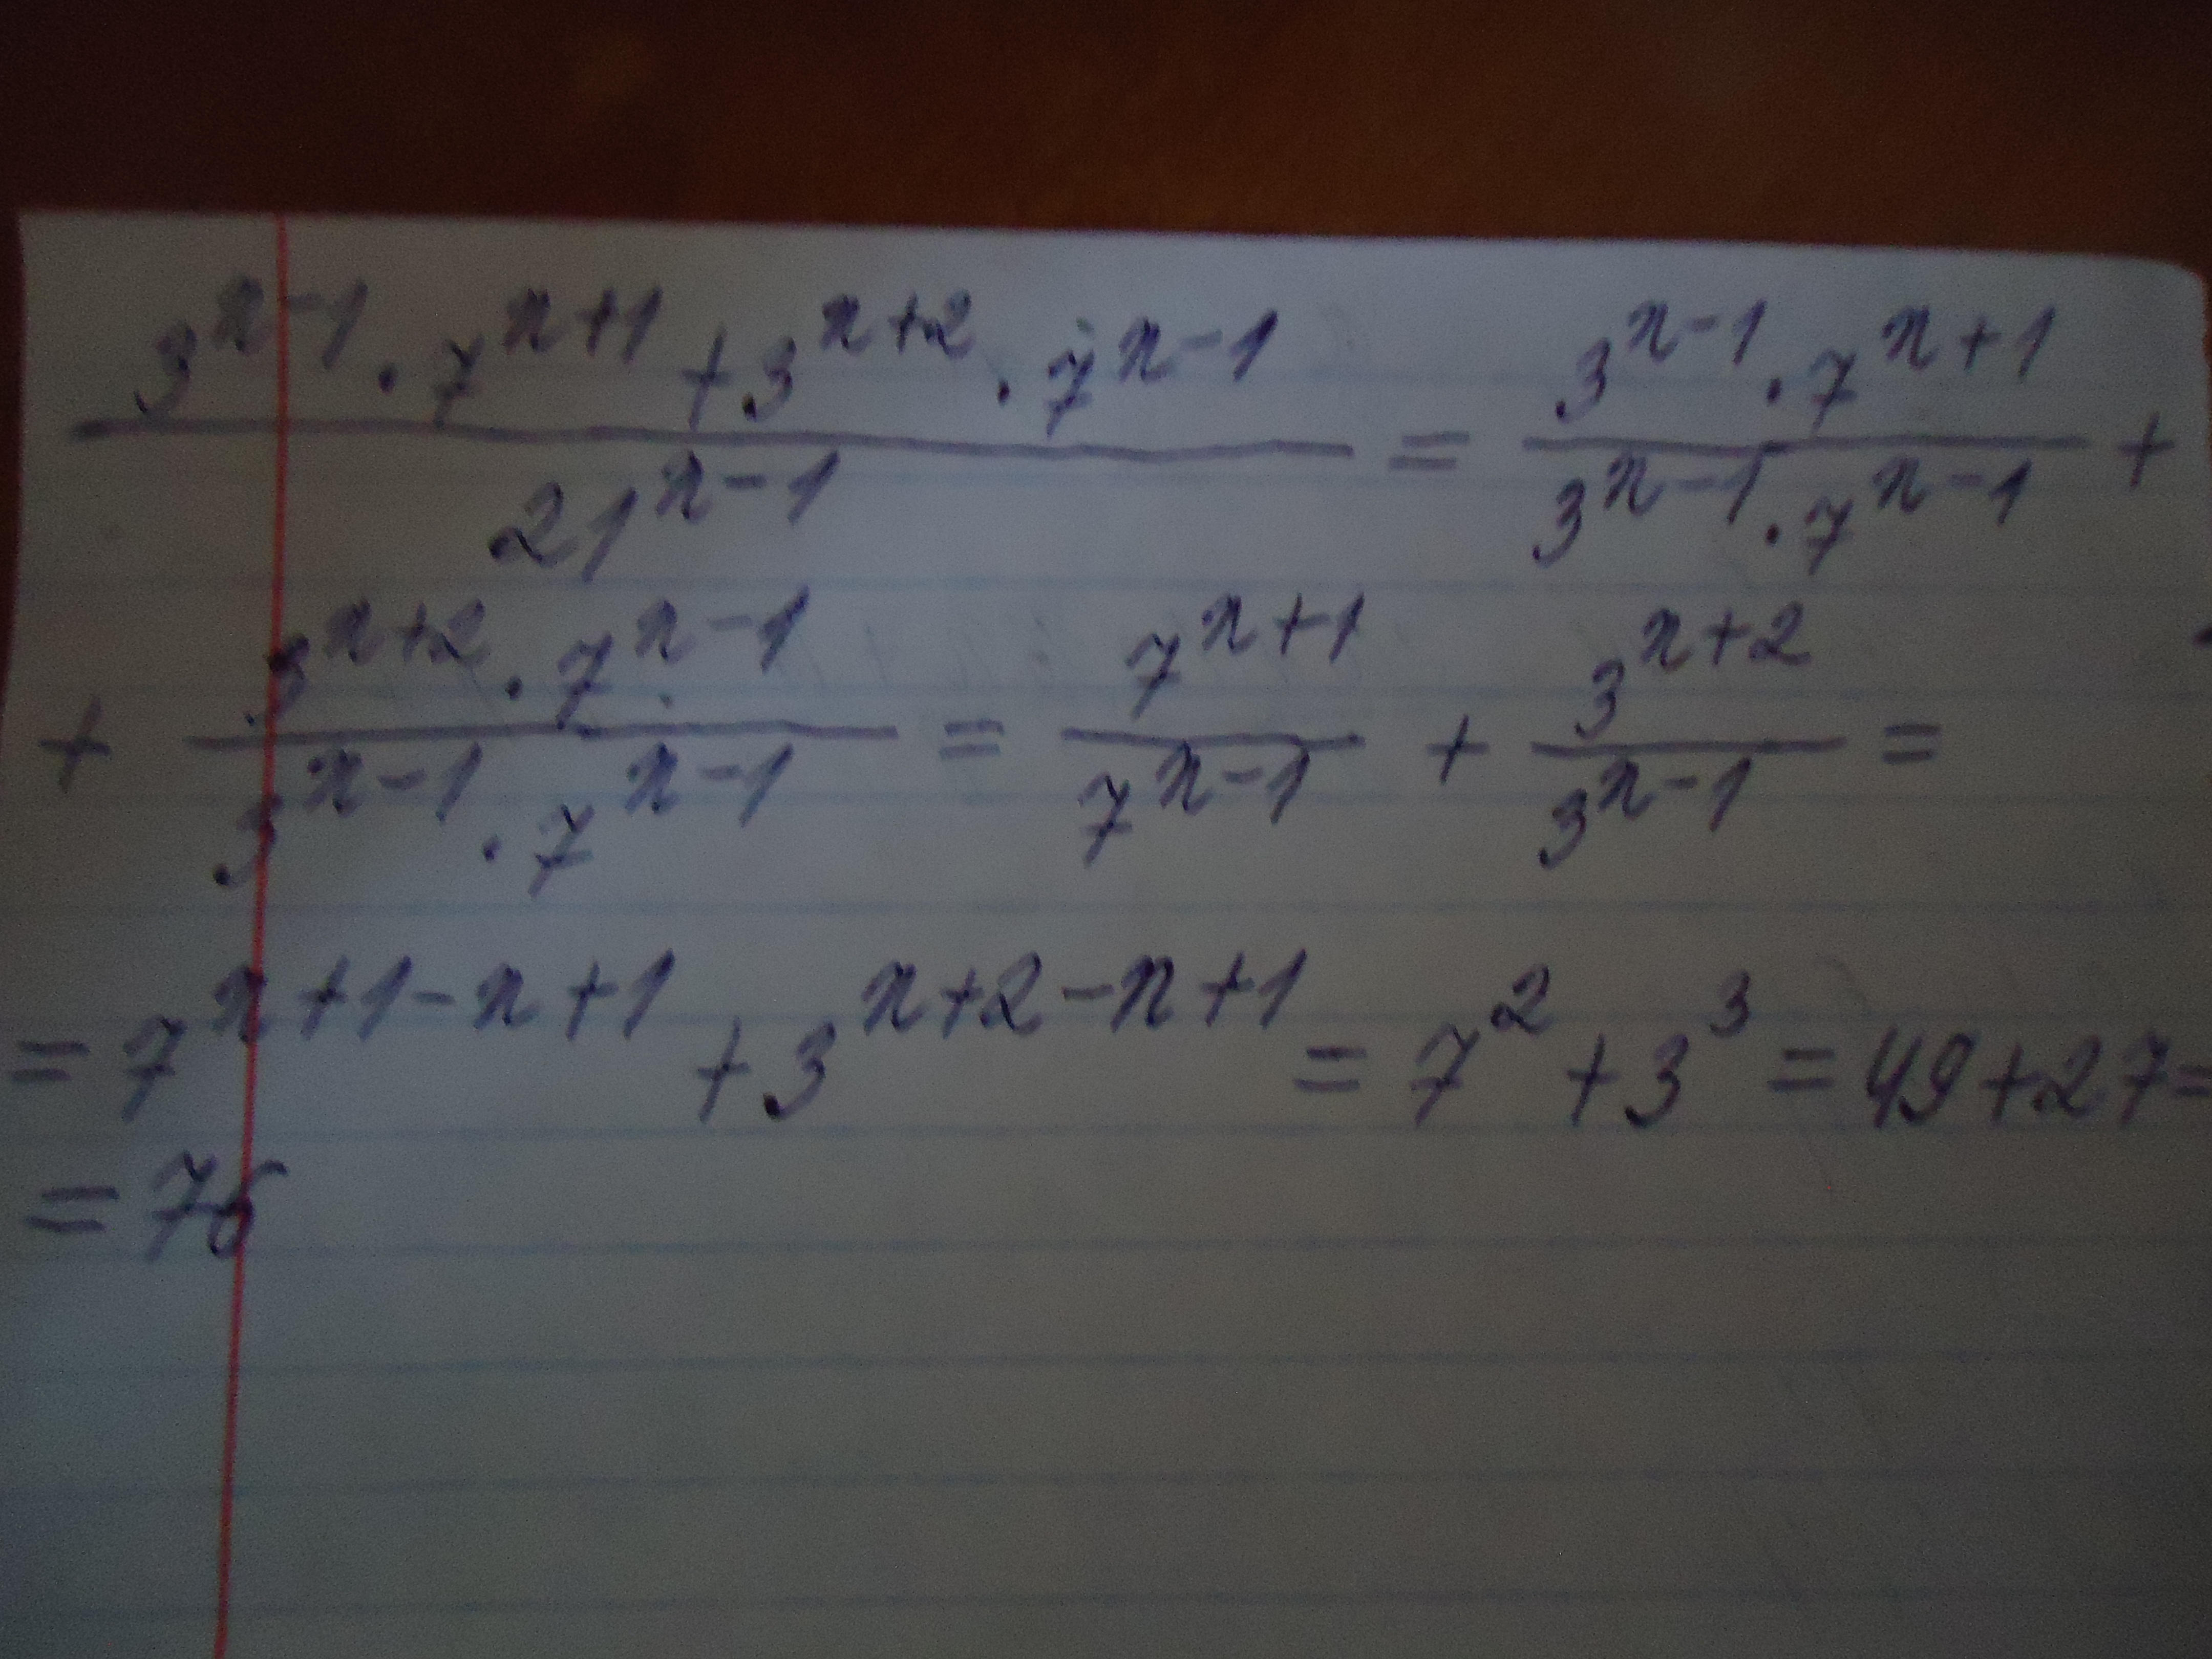 (3^(n-1) · 7^(n+1) + 3^(n+2) · 7^(n-1)) / 21^(n-1) = (3^(n-1) · 7^(n+1)) / (3^(n-1) · 7^(n-1)) +
+ (3^(n+2) · 7^(n-1)) / (3^(n-1) · 7^(n-1)) = 7^(n+1) / 7^(n-1) + 3^(n+2) / 3^(n-1) =
= 7^(n+1-n+1) + 3^(n+2-n+1) = 7^2 + 3^3 = 49 + 27 =
= 76